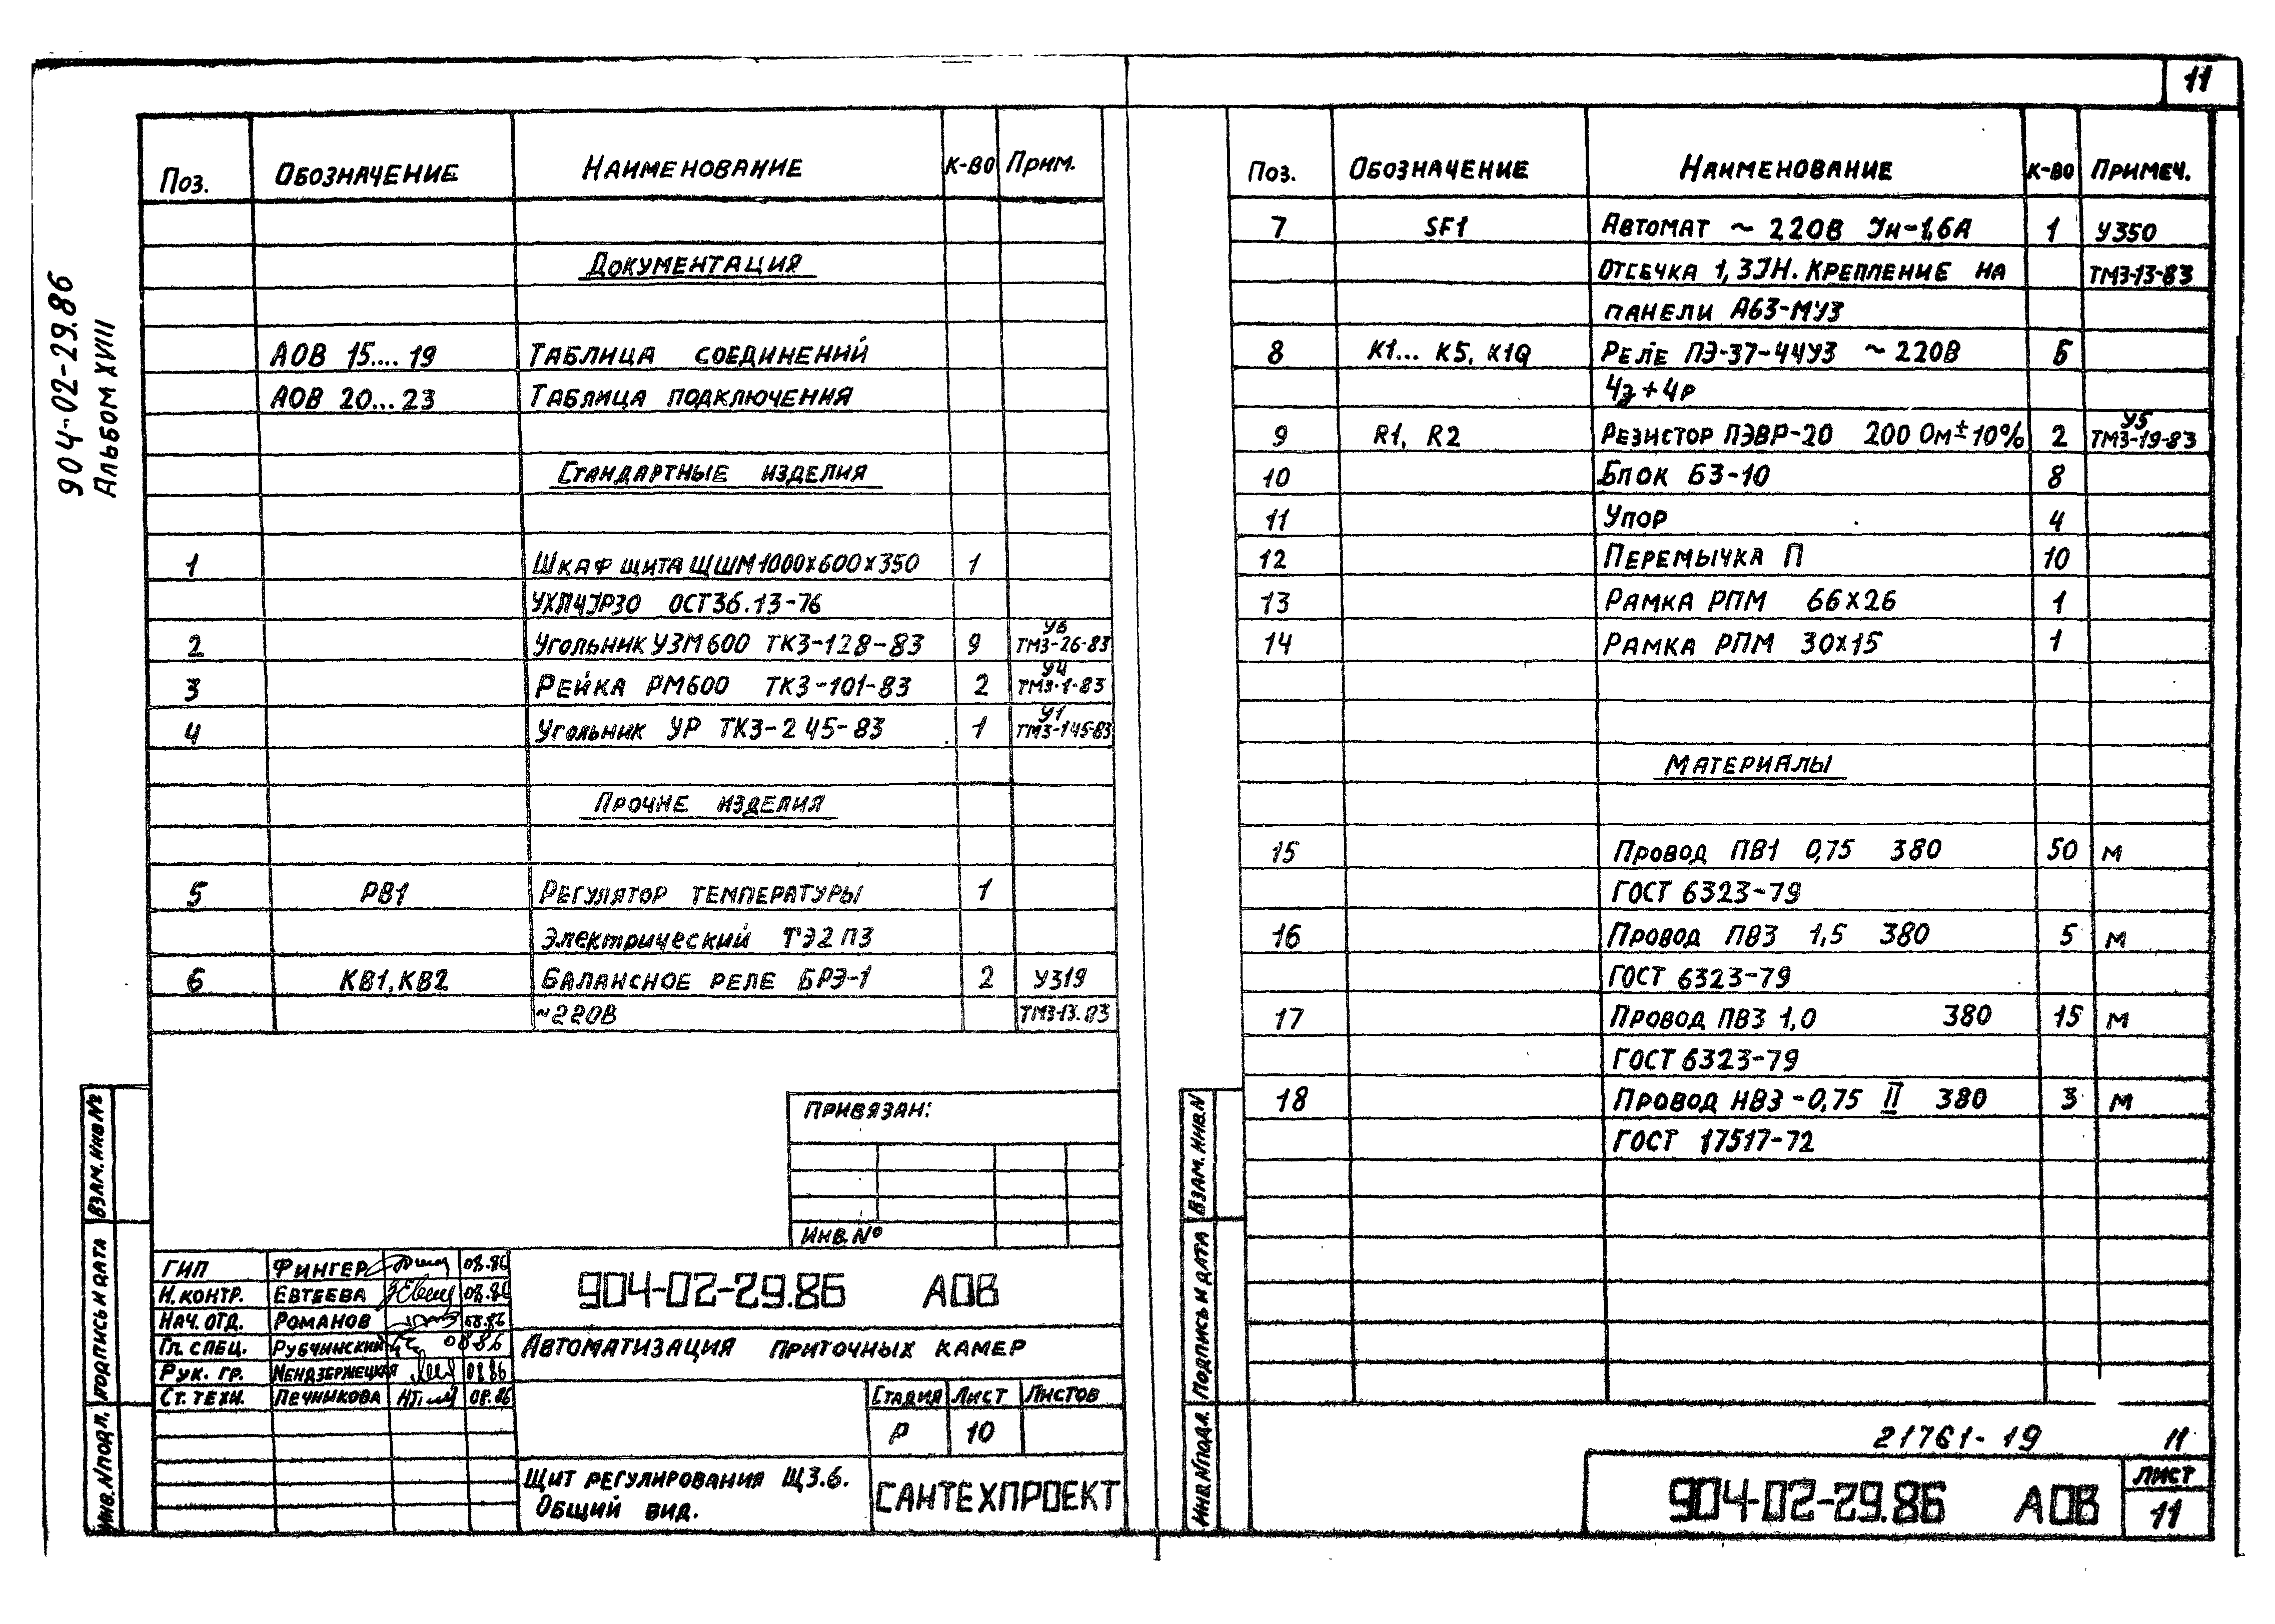 11
904-02-29.86
Альбом XVIII
Поз. Обозначение Наименование К-во Прим.
Документация
АОВ 15....19 Таблица соединений
АОВ 20...23 Таблица подключения
Стандартные изделия
1 Шкаф щита ЩШМ 1000х600х350 1
УХЛ4JP30 ОСТ36.13-76
2 Угольник УЗМ600 ТК3-128-83 9 У6 ТМ3-26-83
3 Рейка РМ600 ТК3-101-83 2 У4 ТМ3-1-83
4 Угольник УР ТК3-245-83 1 У1 ТМ3-145-83
Прочие изделия
5 РВ1 Регулятор температуры 1
электрический ТЭ2П3
6 КВ1, КВ2 Балансное реле БРЭ-1 2 У319
~220В ТМ3-13.83
Привязан:
Инв.№
ГИП Фингер 08.86
Н.контр. Евтеева 08.86
Нач. отд. Романов 08.86
Гл. спец. Рубчинский 08.86
Рук. гр. 08.86
Ст. техн. Печникова 08.86
904-02-29.86 АОВ
Автоматизация приточных камер
Стадия Лист Листов
Р 10
Щит регулирования Щ3.6.
Общий вид.
САНТЕХПРОЕКТ
Взам. инв №
Подпись и дата
Инв. N подл.
Поз. Обозначение Наименование К-во Примеч.
7 SF1 Автомат ~ 220В Jн-1,6А 1 У350
отсечка 1,3Jн. Крепление на ТМ3-13-83
панели А63-МУ3
8 К1... К5, К10 Реле ПЭ-37-44У3 ~220В 6
4з+4р
9 R1, R2 Резистор ПЭВР-20 200 Ом±10% 2 У5 ТМ3-19-83
10 Блок Б3-10 8
11 Упор 4
12 Перемычка П 10
13 Рамка РПМ 66х26 1
14 Рамка РПМ 30х15 1
Материалы
15 Провод ПВ1 0,75 380 50 м
ГОСТ 6323-79
16 Провод ПВ3 1,5 380 5 м
ГОСТ 6323-79
17 Провод ПВ3 1,0 380 15 м
ГОСТ 6323-79
18 Провод НВ3-0,75 II 380 3 м
ГОСТ 17517-72
Взам. инв. N
Подпись и дата
Инв. N подл.
21761-19 11
904-02-29.86 АОВ
Лист
11